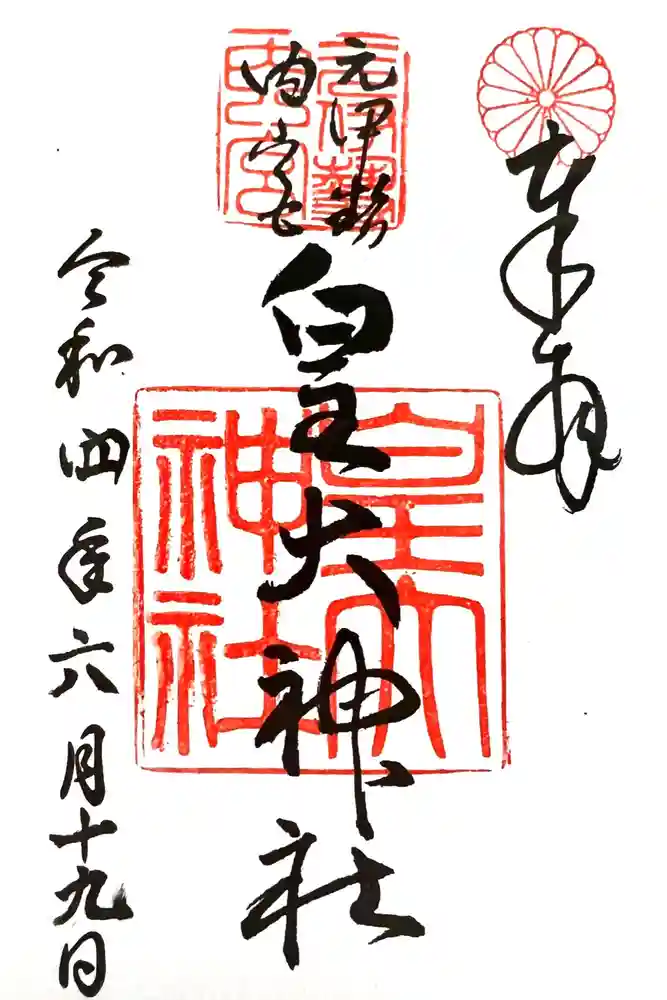 奉拝
元伊勢
内宮
皇大神社
皇大神社
元伊勢
内宮
令和四年六月十九日